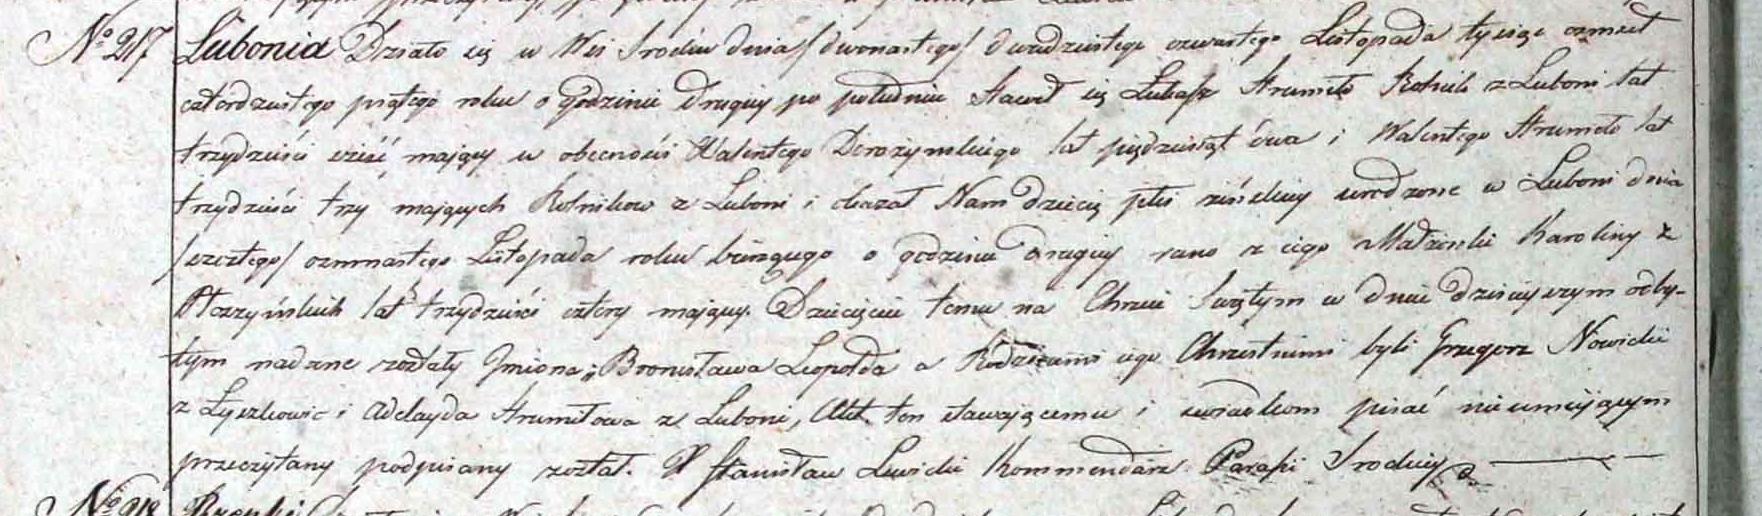 No 217 Lubonia Działo się w Wsi Srocku dnia /dwunastego/ dwudziestego czwartego Listopada tysiąc osmset
czterdziestego piątego roku o godzinie drugiey po południu Stawił się Łukasz Strumiło Rolnik z Luboni lat
trzydzieści sześć mający w obecności Walentego Dorożynskiego lat piędziesiąt dwa i Walentego Strumiło lat
trzydzieści trzy maiących Rolnikow z Luboni i okazał Nam dziecię płci zeńskiey urodzone w Luboni dnia
/szóstego/ osmnastego Listopada roku bieżącego o godzinie drugiey rano z iego Małżonki Karoliny z
lat trzydzieści cztery maiący. Dziecięciu temu na Chrzcie Swiętym w dniu dzisieyszym odby-
tym nadane zostały Jmiona; Bronisława Leopolda a Rodzicami iego Chrzestnemi byli Grzegorz Nowicki
z Łyszkowic i Adelayda Strumiłowa z Luboni, Akt ten stawaiącemu i swiadkom pisać nieumieiącym
przeczytany podpisany został. X Stanisław Lewicki Kommendarz Parafii Srockiey
No 218